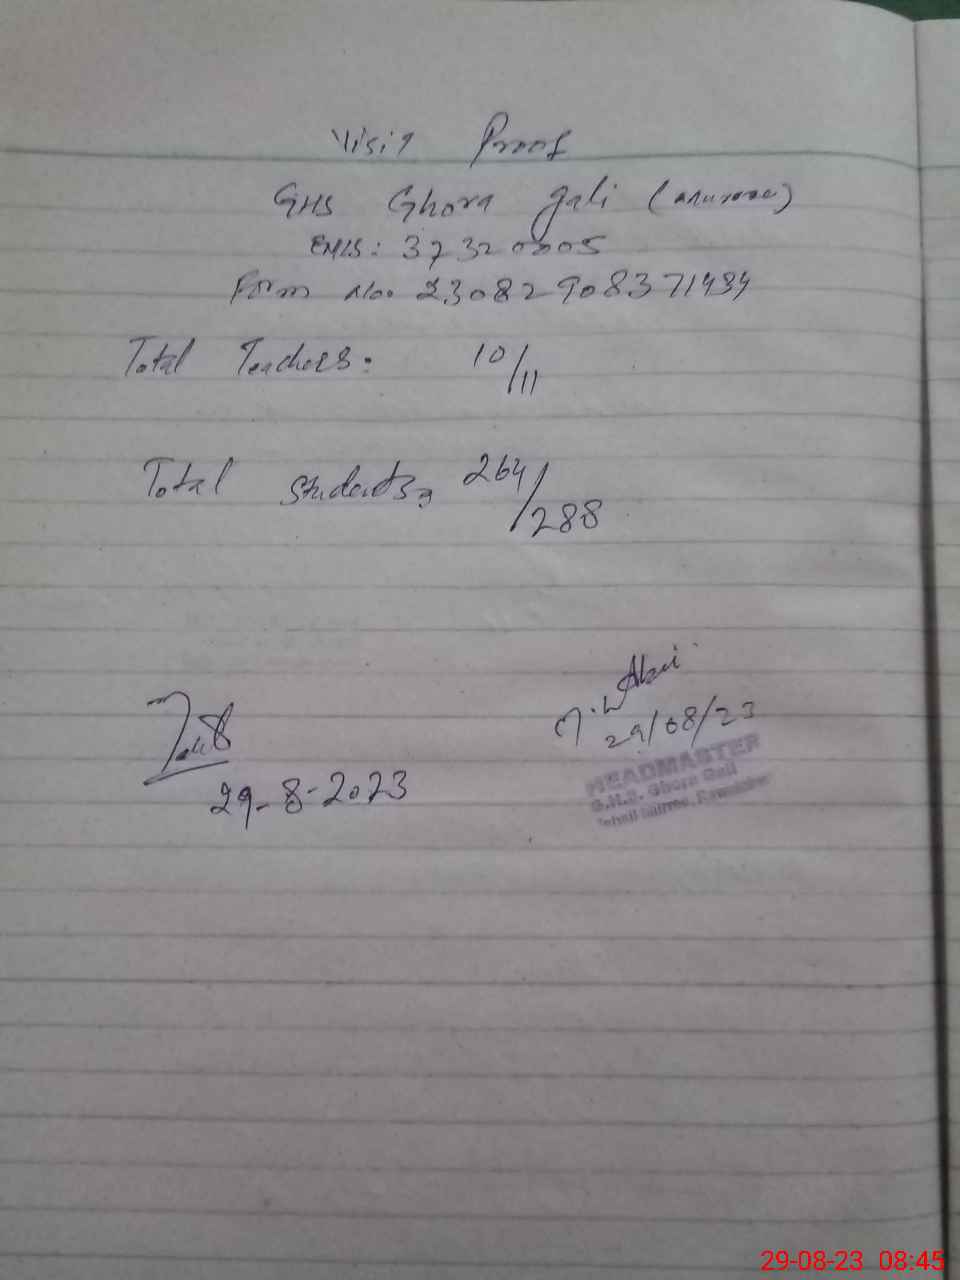 Visit Proof
GHS Ghora gali (Murree)
EMIS: 37320005
Form No. 23082908371434
Total Teachers: 10/11
Total Students, 264/288
29/08/23
29-8-2023
HEADMASTER
G.H.S. Ghora Gali
Tehsil Murree, Rawalpindi
29-08-23 08:45